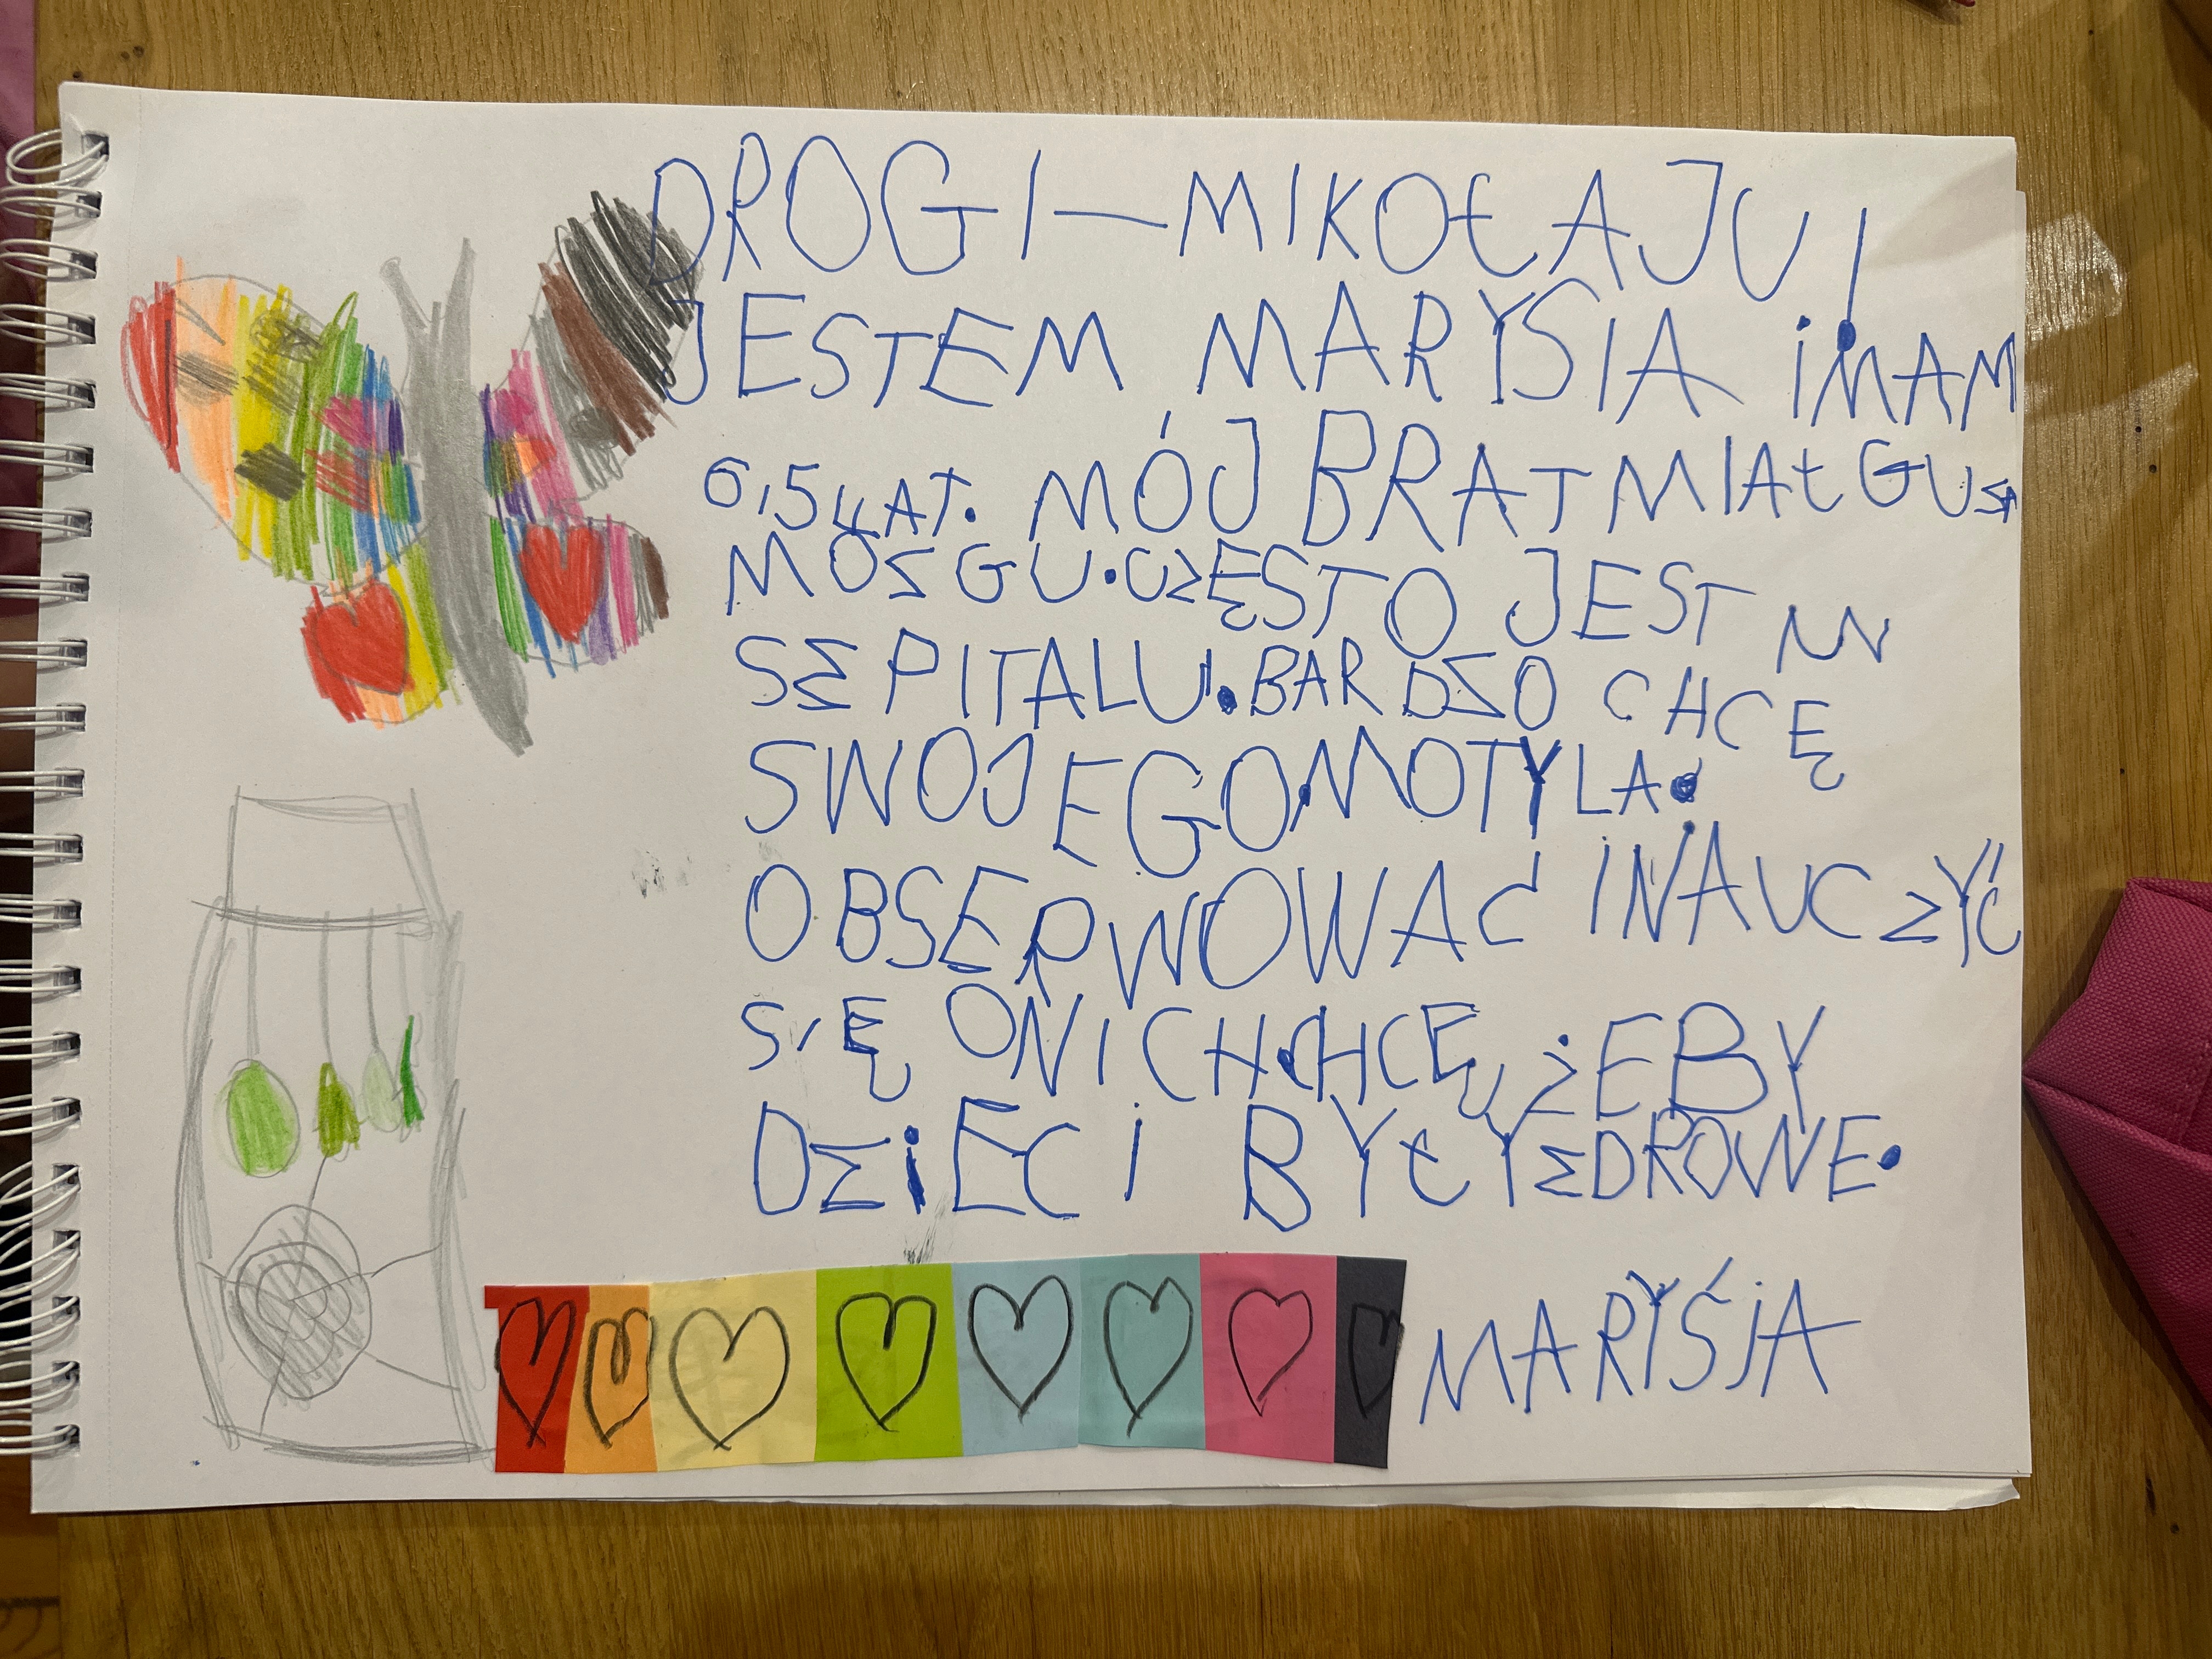 DROGI—MIKOŁAJU!
JESTEM MARYSIA i MAM
6,5 LAT. MÓJ BRAT MIAŁ GUZA
MÓZGU. CZĘSTO JEST W
SZPITALU. BARDZO CHCĘ
SWOJEGO MOTYLA.
OBSERWOWAĆ I NAUCZYĆ
SIĘ O NICH. CHCĘ, ŻEBY
DZiECI BYŁY ZDROWE.
MARYŚjA